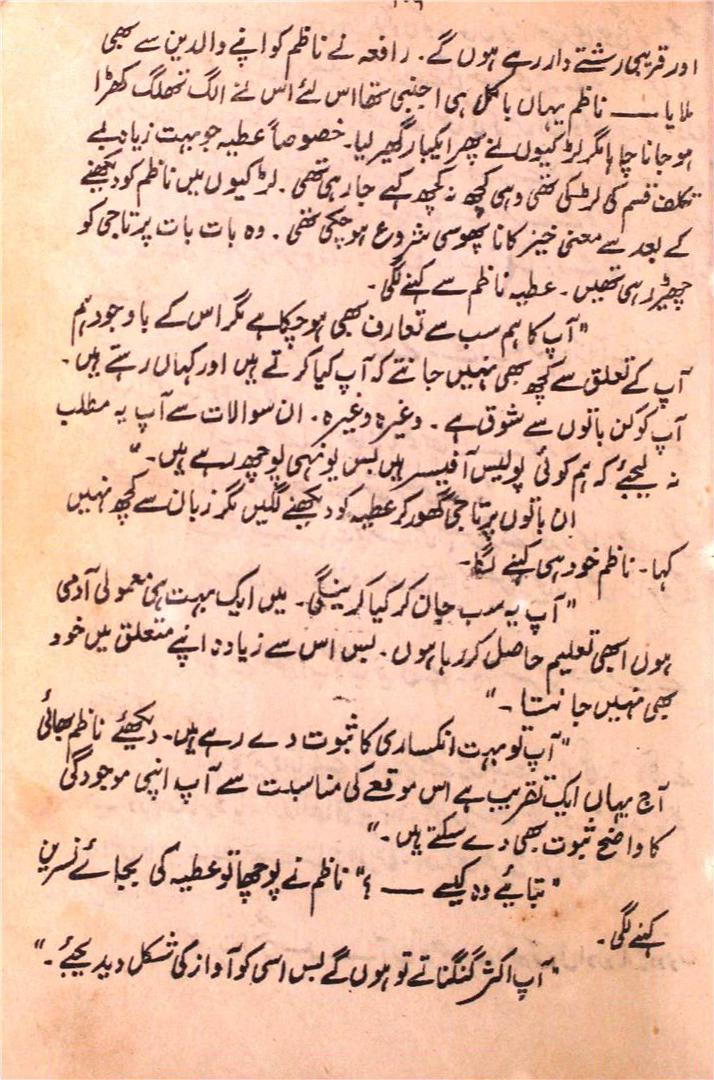 ۱۰۹
اور قریبی رشتے دار رہے ہوں گے. رافعہ نے ناظم کو اپنے والدین سے بھی
ملایا —— ناظم یہاں بالکل ہی اجنبی تھا اس لئے اس نے الگ تھلگ کھڑا
ہو جانا چاہا مگر لڑکیوں نے پھر ایکبار گھیر لیا۔ خصوصاً عطیہ جو بہت زیادہ بے
تکلف قسم کی لڑکی تھی وہی کچھ نہ کچھ کہے جا رہی تھی ۔ لڑکیوں میں ناظم کو دیکھنے
کے بعد سے معنی خیز کانا پھوسی شروع ہو چکی تھی ۔ وہ بات بات پر تاجی کو
چھیڑ رہی تھیں ۔ عطیہ ناظم سے کہنے لگی ۔
"آپ کا ہم سب سے تعارف بھی ہو چکا ہے مگر اس کے باوجود ہم
آپ کے تعلق سے کچھ بھی نہیں جانتے کہ آپ کیا کرتے ہیں اور کہاں رہتے ہیں ۔
آپ کو کن باتوں سے شوق ہے ۔ وغیرہ وغیرہ ۔ ان سوالات سے آپ یہ مطلب
نہ لیجئے کہ ہم کوئی پولیس آفیسر ہیں بس یونہی پوچھ رہے ہیں ۔"
ان باتوں پر تاجی گھور کر عطیہ کو دیکھنے لگیں مگر زبان سے کچھ نہیں
کہا ۔ ناظم خود ہی کہنے لگا ۔
"آپ یہ سب جان کر کیا کرینگی ۔ میں ایک بہت ہی معمولی آدمی
ہوں ابھی تعلیم حاصل کر رہا ہوں ۔ بس اس سے زیادہ اپنے متعلق میں خود
بھی نہیں جانتا ۔"
"آپ تو بہت انکساری کا ثبوت دے رہے ہیں ۔ دیکھئے ناظم بھائی
آج یہاں ایک تقریب ہے اس موقعے کی مناسبت سے آپ اپنی موجودگی
کا واضح ثبوت بھی دے سکتے ہیں ۔"
"بتایئے وہ کیسے —— ؟" ناظم نے پوچھا تو عطیہ کی بجائے نسرین
کہنے لگی ۔
"آپ اکثر گنگناتے تو ہوں گے بس اسی کو آواز کی شکل دیدیجئے ۔"